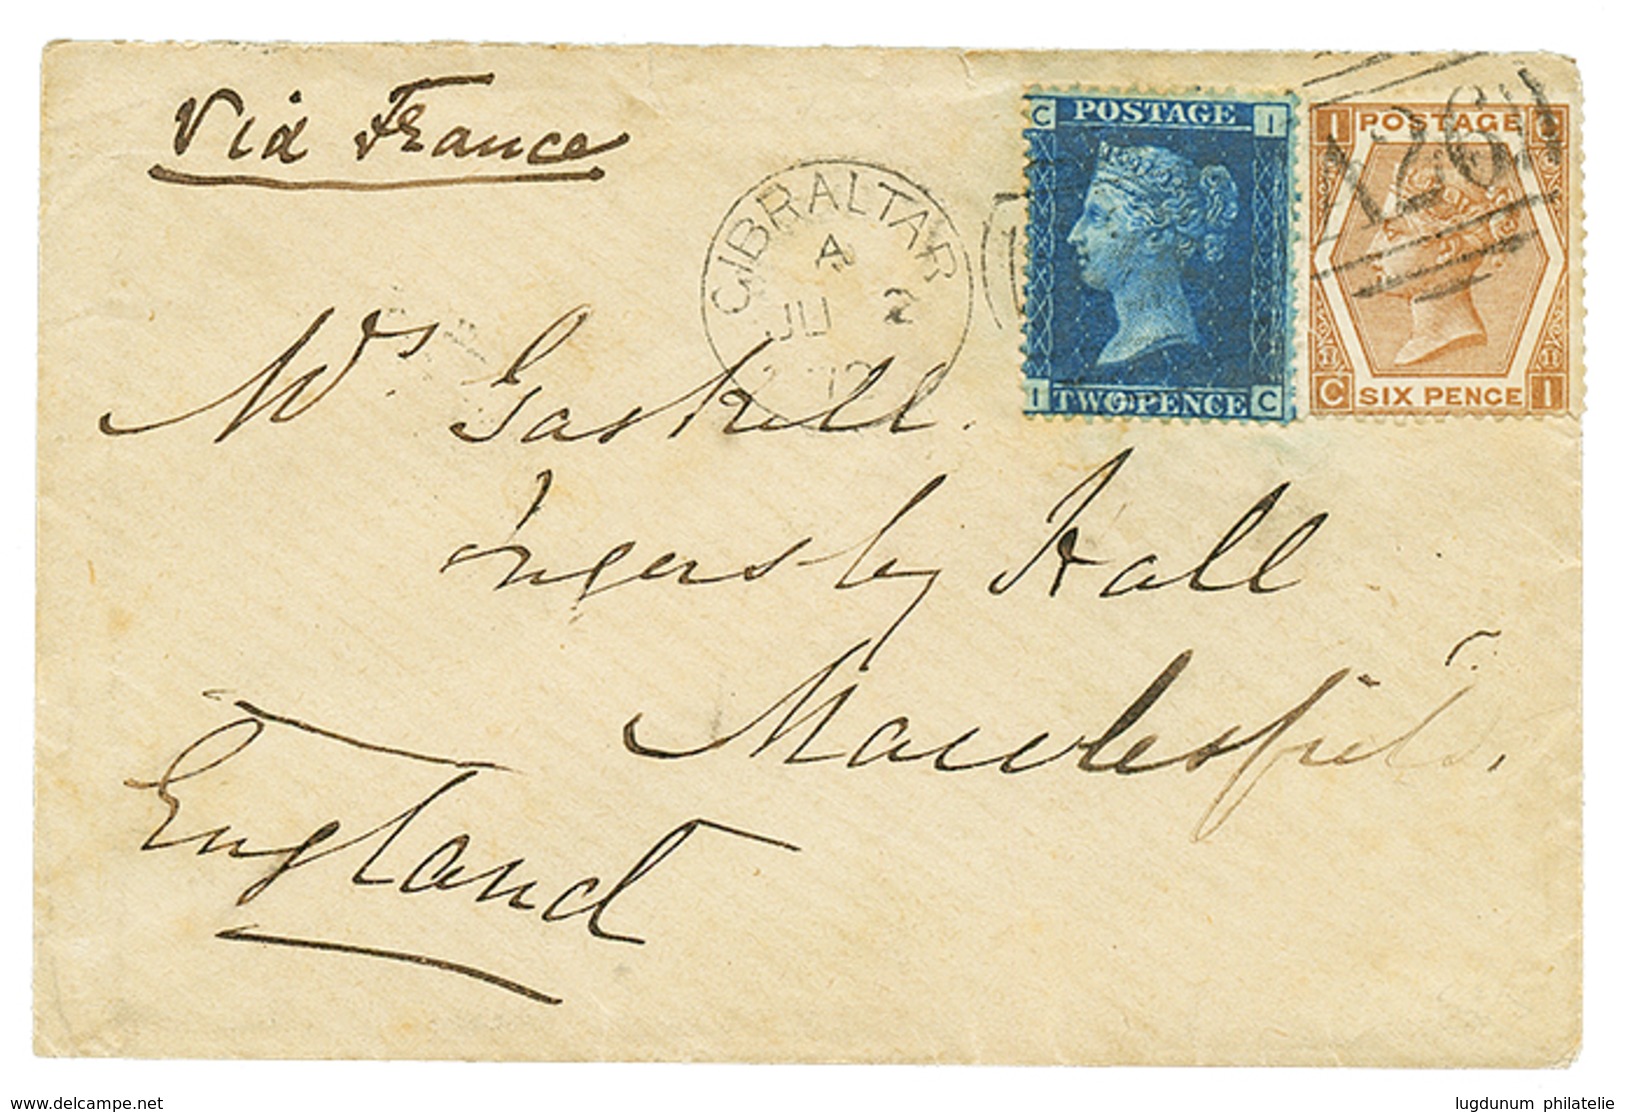 Via France
GIBRALTAR
A
JU 2
72
C POSTAGE I
I TWO PENCE C
I POSTAGE C
11 11
C SIX PENCE I
A26
Mrs Gaskell.
Ingersby Hall
Macclesfield.
England
www.delcampe.net
lugdunum philatelie